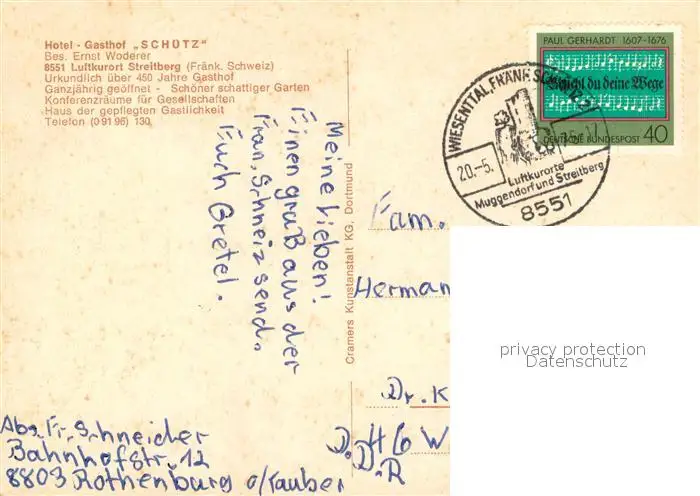 Hotel - Gasthof „SCHÜTZ"
Bes. Ernst Woderer
8551 Luftkurort Streitberg (Fränk. Schweiz)
Urkundlich über 450 Jahre Gasthof
Ganzjährig geöffnet - Schöner schattiger Garten
Konferenzräume für Gesellschaften
Haus der gepflegten Gastlichkeit
Telefon (0 91 96) 130
PAUL GERHARDT 1607-1676
du deine Wege
DEUTSCHE BUNDESPOST 40
WIESENTTAL, FRÄNK SCHWEIZ
20.-5.
Luftkurorte
Muggendorf und Streitberg
8551
Meine Lieben!
Einen gruß aus der
Frän. Schweiz send.
Euch Gretel.
Cramers Kunstanstalt KG, Dortmund
Fam.
Herman
Dr. K
D. H6 W
D.D.R
privacy protection
Datenschutz
Abs. Fr. Schneider
Bahnhofstr. 12
8803 Rothenburg o/Tauber